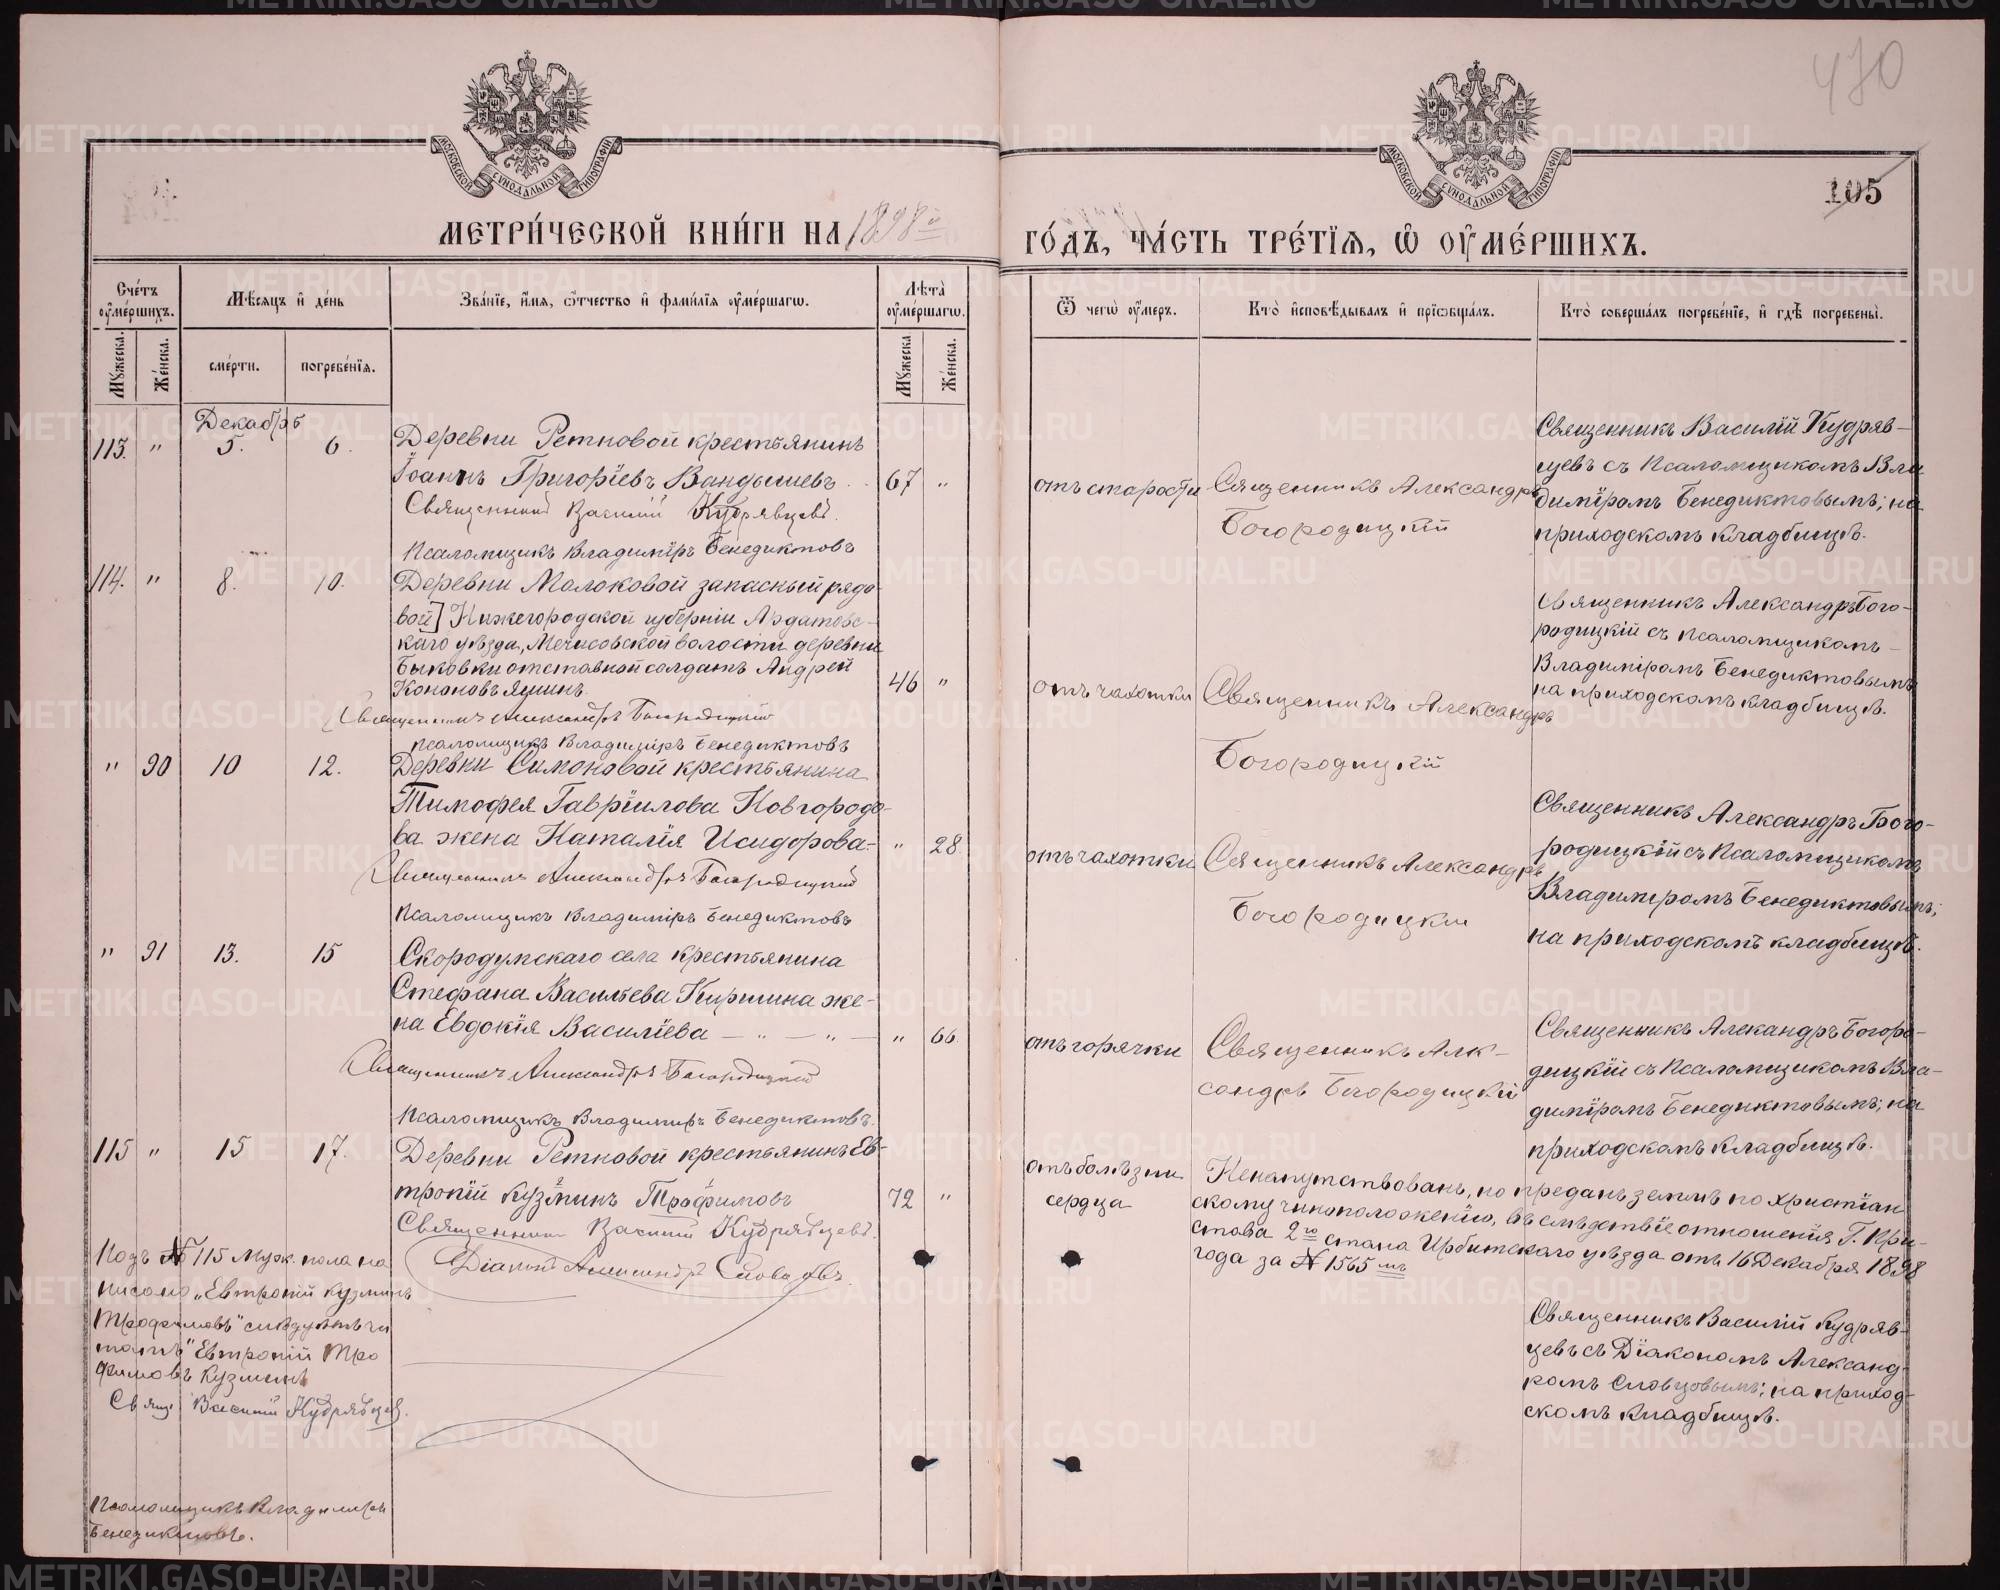 470
105
МОСКОВСКОЙ СѴНОДАЛЬНОЙ ТИПОГРАФІИ
МОСКОВСКОЙ СѴНОДАЛЬНОЙ ТИПОГРАФІИ
МЕТРИ́ЧЕСКОЙ КНИ́ГИ НА 1898й ГО́ДЪ, ЧА́СТЬ ТРЕ́ТІѦ, Ѡ ОУМЕ́РШИХЪ.
Счетъ оумершихъ.
Мужеска.
Женска.
Мѣсяцъ и день
смерти.
погребенія.
Званіе, имя, отчество и фамилія оумершагѡ.
Лѣта оумершагѡ.
Мужеска.
Женска.
Ѿ чегѡ оумеръ.
Кто исповѣдывалъ и пріобщалъ.
Кто совершалъ погребеніе, и гдѣ погребены.
Декабрь
113. " 5. 6.
Деревни Ретновой крестьянинъ
Іоаннъ Григоріевъ Вандышевъ
67 "
Священникъ Василій Кудрявцевъ.
Псаломщикъ Владиміръ Бенедиктовъ
отъ старости
Священникъ Александръ
Богородицкій
Священникъ Василій Кудряв-
цевъ съ Псаломщикомъ Вла
диміромъ Бенедиктовымъ; на
приходскомъ кладбищѣ.
114. " 8. 10.
Деревни Молоковой запасный рядо-
вой] Нижегородской губерніи Ардатовс-
каго уѣзда, Мечасовской волости деревни
Быковки отставной солдатъ Андрей
Кононовъ Яшинъ.
46 "
Священникъ Александръ Богородицкій
псаломщикъ Владиміръ Бенедиктовъ
отъ чахотки
Священникъ Александръ
Богородицкій
Священникъ Александръ Бого-
родицкій съ псаломщикомъ
Владиміромъ Бенедиктовымъ
на приходскомъ кладбищѣ.
" 90 10 12.
Деревни Симоновой крестьянина
Тимофея Гавріилова Новгородо-
ва жена Наталія Исидорова
" 28
Священникъ Александръ Богородицкій
Псаломщикъ Владиміръ Бенедиктовъ
отъ чахотки
Священникъ Александръ
Богородицкій
Священникъ Александръ Бого-
родицкій съ Псаломщикомъ
Владиміромъ Бенедиктовымъ;
на приходскомъ кладбищѣ.
" 91 13. 15
Скородумскаго села крестьянина
Стефана Васильева Киршина же-
на Евдокія Василіева — " — " —
" 66
Священникъ Александръ Богородицкій
Псаломщикъ Владиміръ Бенедиктовъ.
отъ горячки
Священникъ Алк-
сандръ Богородицкій
Священникъ Алекандръ Богоро-
дицкій съ Псаломщикомъ Вла-
диміромъ Бенедиктовымъ; на
приходскомъ кладбищѣ.
115 " 15 17.
Деревни Ретновой крестьянинъ Ев-
тропій Кузминъ Трофимовъ
72 "
Священникъ Василій Кудрявцевъ.
Діаконъ Александръ Словцовъ.
отъ болѣзни
сердца
Ненапутствованъ, но преданъ землѣ по христіан
скому чиноположенію, вслѣдствіе отношенія Г. При-
става 2го стана Ирбитскаго уѣзда отъ 16 Декабря 1898
года за № 1565мъ
Священникъ Василій Кудряв-
цевъ съ Діакономъ Александ-
ромъ Словцовымъ; на приход-
скомъ кладбищѣ.
Подъ № 115 муж. пола на
писано „Евтропій Кузминъ
Трофимовъ" слѣдуетъ чи
тать „Евтропій Тро
фимовъ Кузминъ
Свящ. Василій Кудрявцев.
Псаломщикъ Владиміръ
Бенедиктовъ.
METRIKI.GASO-URAL.RU